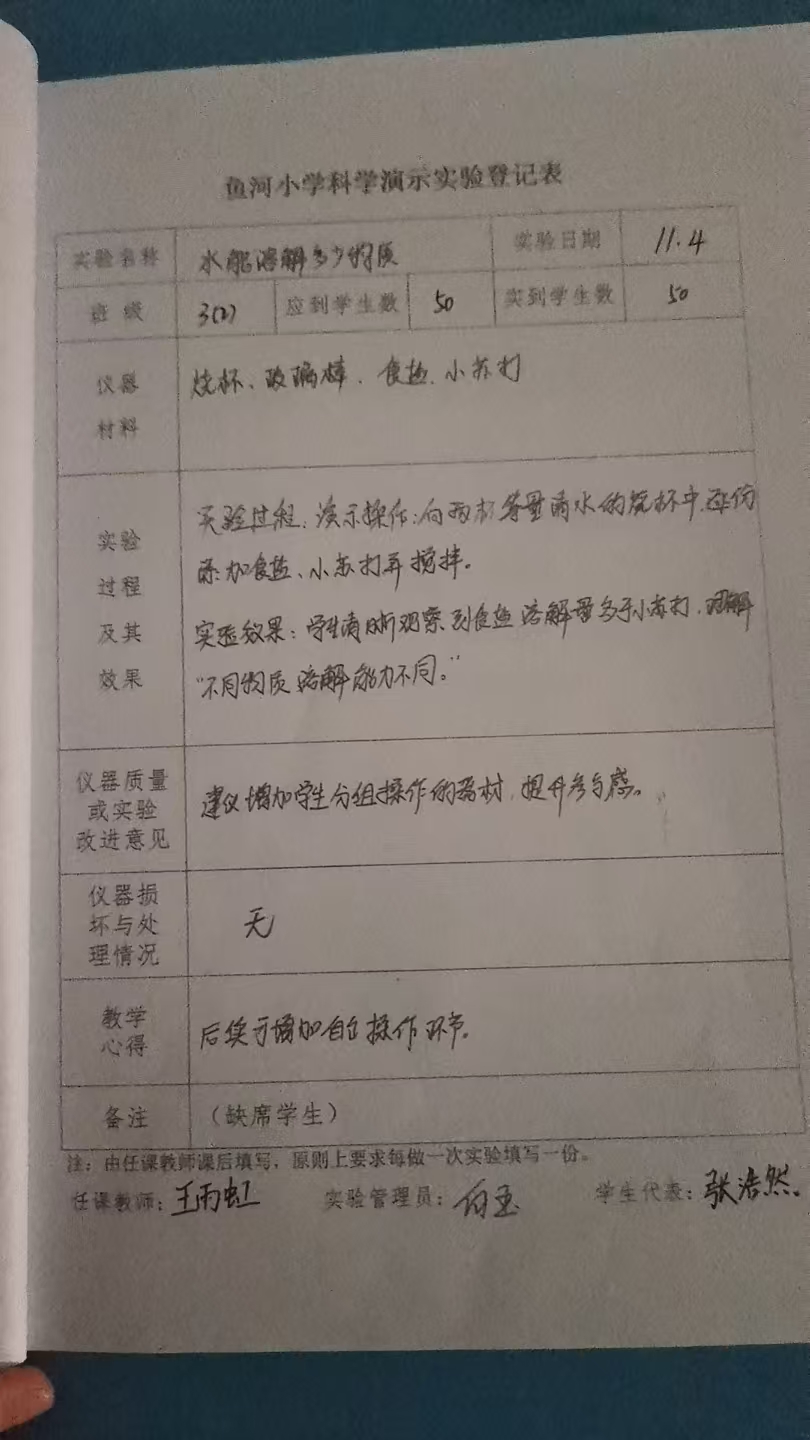 鱼河小学科学演示实验登记表
实验名称 水能溶解多少物质 实验日期 11.4
班 级 3(2) 应到学生数 50 实到学生数 50
仪器
材料
烧杯、玻璃棒、食盐、小苏打
实验
过程
及其
效果
实验过程:演示操作:向两杯等量清水的烧杯中,逐份
添加食盐、小苏打并搅拌。
实验效果:学生清晰观察到食盐溶解量多于小苏打,理解
“不同物质溶解能力不同。”
仪器质量
或实验
改进意见
建议增加学生分组操作的器材,提升参与感。
仪器损
坏与处
理情况
无
教学
心得
后续可增加自主操作环节。
备注 (缺席学生)
注:由任课教师课后填写,原则上要求每做一次实验填写一份。
任课教师:王雨虹 实验管理员:白玉 学生代表:张浩然。